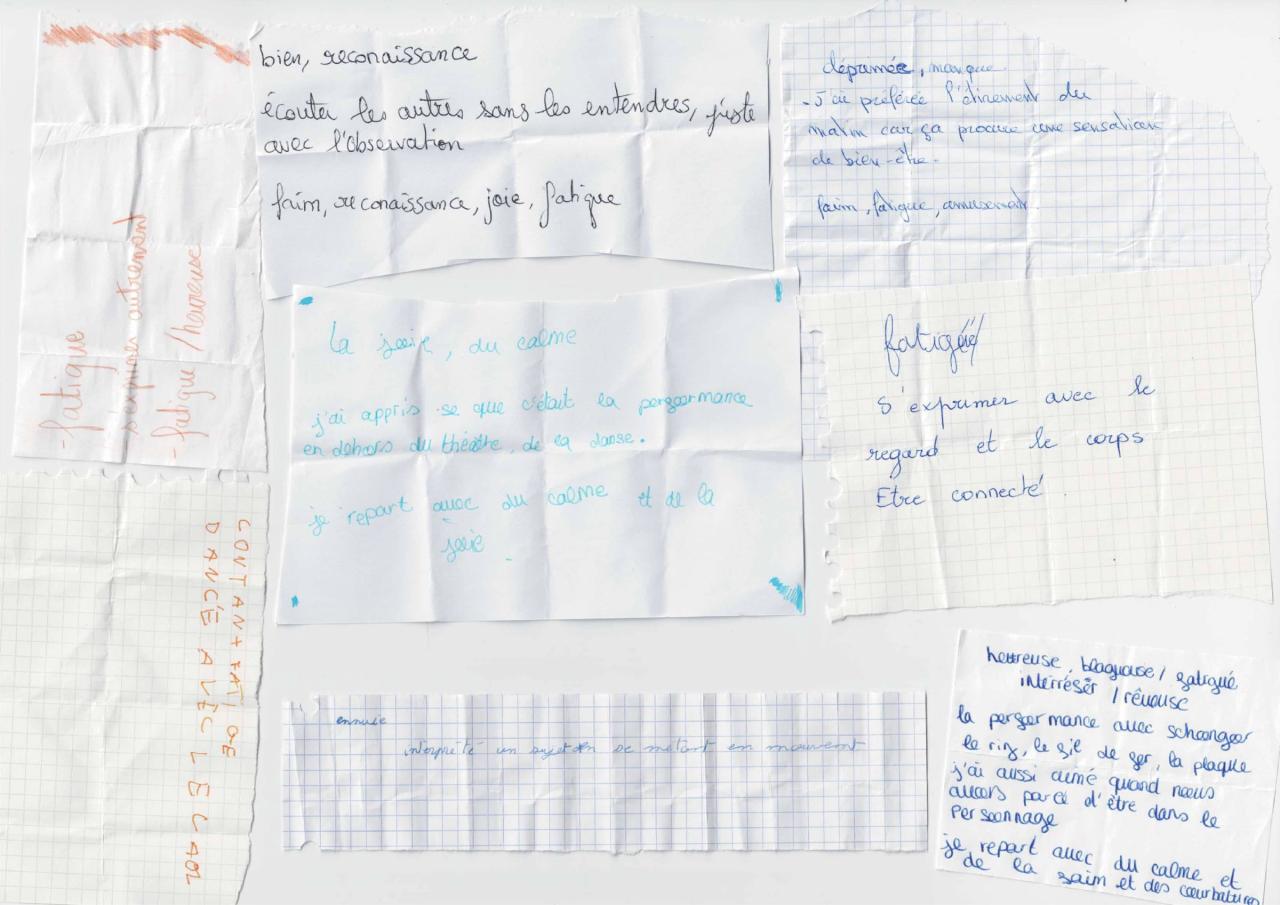 bien, reconaissance
écouter les autres sans les entendres, juste
avec l'observation
faim, reconaissance, joie, fatigue
déprimée, manque
- J'ai préférée l'étirement du
matin car ça procure une sensation
de bien-être.
faim, fatigue, amusement.
- fatigue
s'exprimer autrement
- fatigue / heureuse
La joie, du calme
j'ai appris se que c'était la performance
en dehors du théâtre, de la danse.
je repart avec du calme et de la
joie.
fatigée
S'exprimer avec le
regard et le corps
Etre connecté.
DANCÉ AVEC LE
ennuie
interprété un en se metant en mouvement
heureuse, blagueuse / fatigué
interréser / rêveuse
la performance avec
le riz, le fil de fer, la plaque
j'ai aussi aimé quand nous
avons parcé d'être dans le
personnage
je repart avec du calme et
de la faim et des courbatures